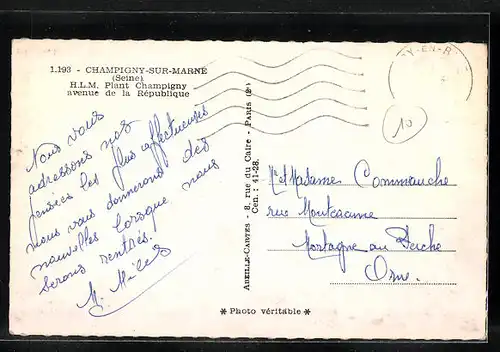 1.193 - CHAMPIGNY-SUR-MARNE
(Seine)
H.L.M. Plant Champigny
avenue de la République
Nous vous
adressons nos
pensées les plus affectueuses
nous vous donnerons dès
nouvelles lorsque nous
serons rentrés.
ABEILLE-CARTES - 8, rue du Caire - PARIS (2e)
Cen. : 41-28.
10
Mr et Madame Commauche
rue Montcacune
Mortagne au Perche
Orne
* Photo véritable *